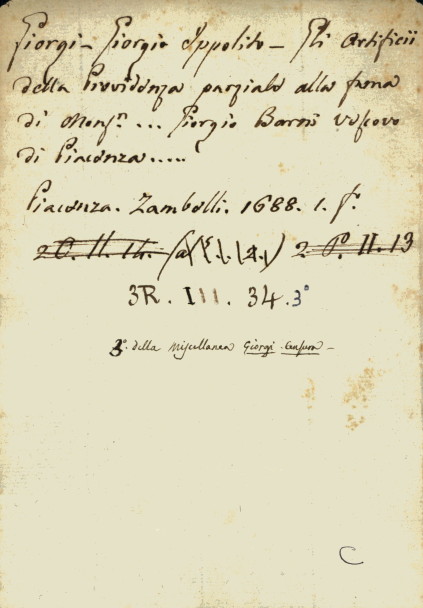 Giorgi - Giorgio Ippolito - Gli Artificii
della Providenza parziale alla fama
di Monsr. ... Giorgio Barni Vescovo
di Piacenza.....
Piacenza. Zambelli. 1688. 1. f.
2 P. II. 13
3R. III. 34.3°
3°. della Miscellanea Giorgi
C